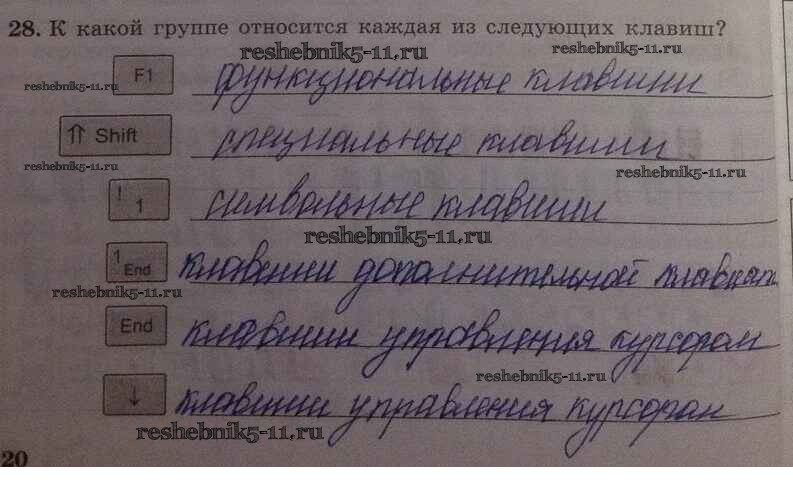 28. К какой группе относится каждая из следующих клавиш?
reshebnik5-11.ru reshebnik5-11.ru
F1 функциональные клавиши
reshebnik5-11.ru
⇈ Shift специальные клавиши
reshebnik5-11.ru reshebnik5-11.ru
! 1 символьные клавиши
reshebnik5-11.ru
1 End клавиши дополнительной клавиат
reshebnik5-11.ru
End клавиши управления курсором
reshebnik5-11.ru
↓ клавиши управления курсором
reshebnik5-11.ru
20